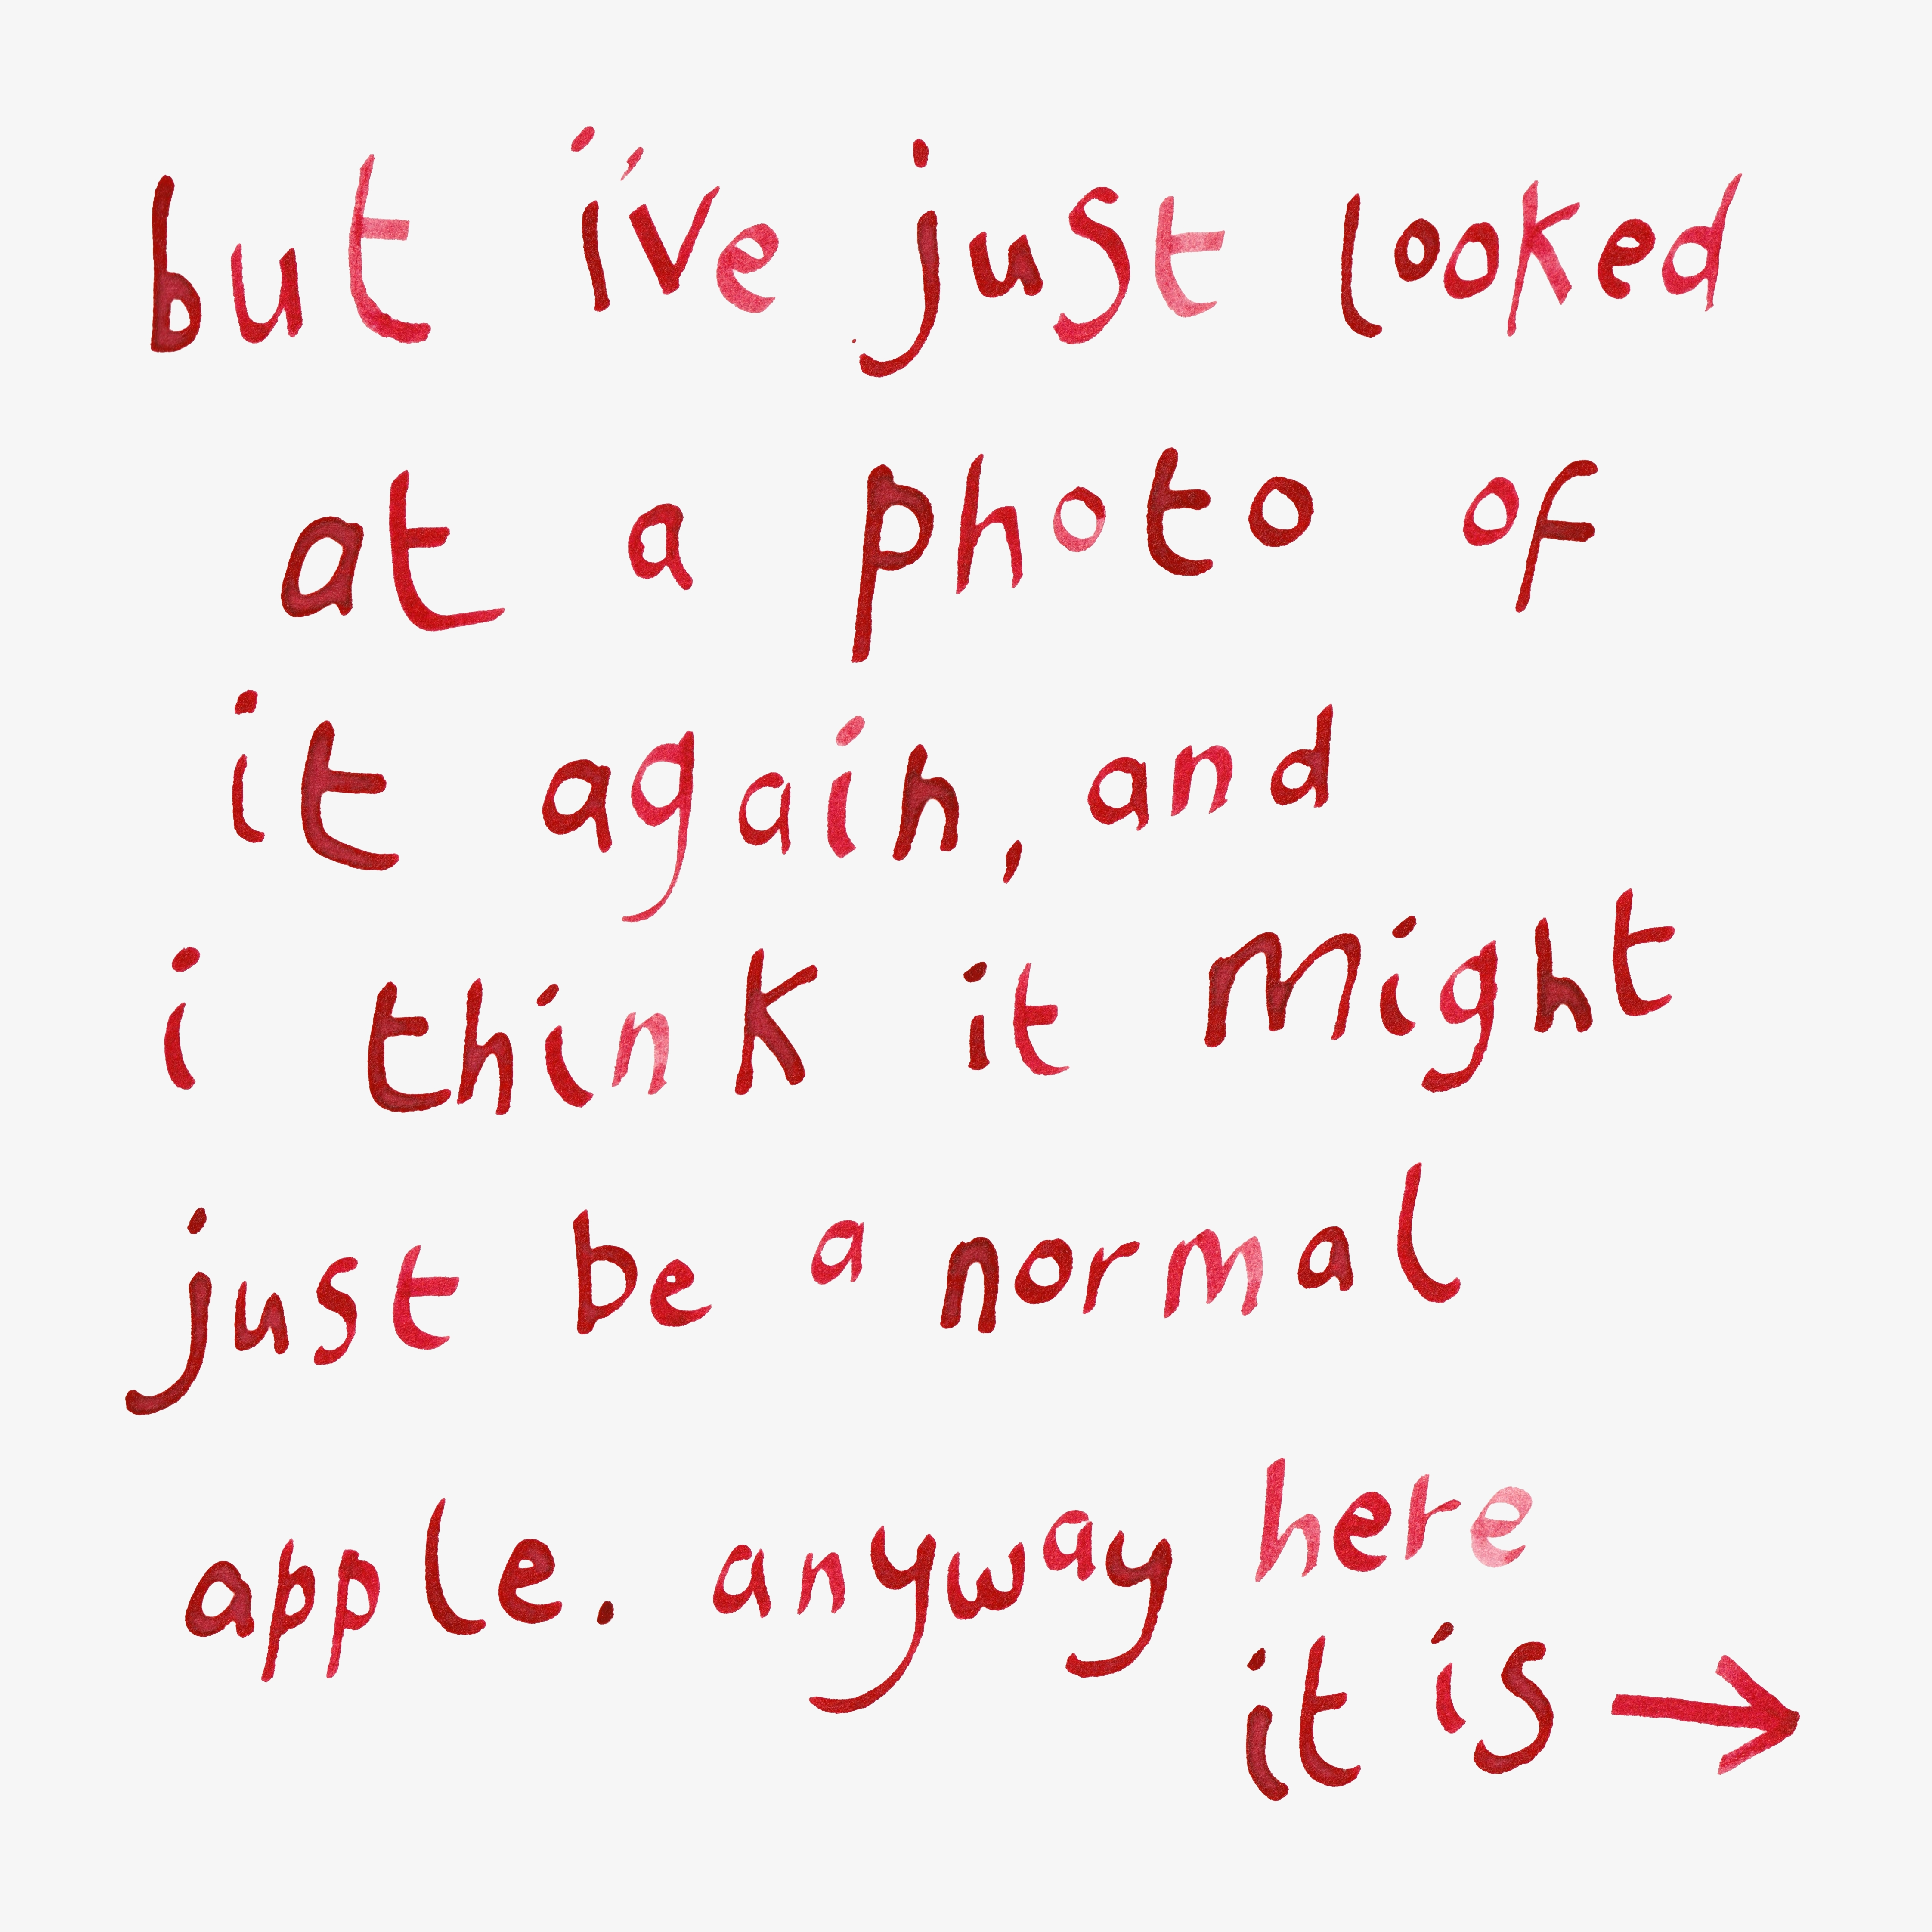 but i've just looked
at a photo of
it again, and
i think it might
just be a normal
apple. anyway here
it is →